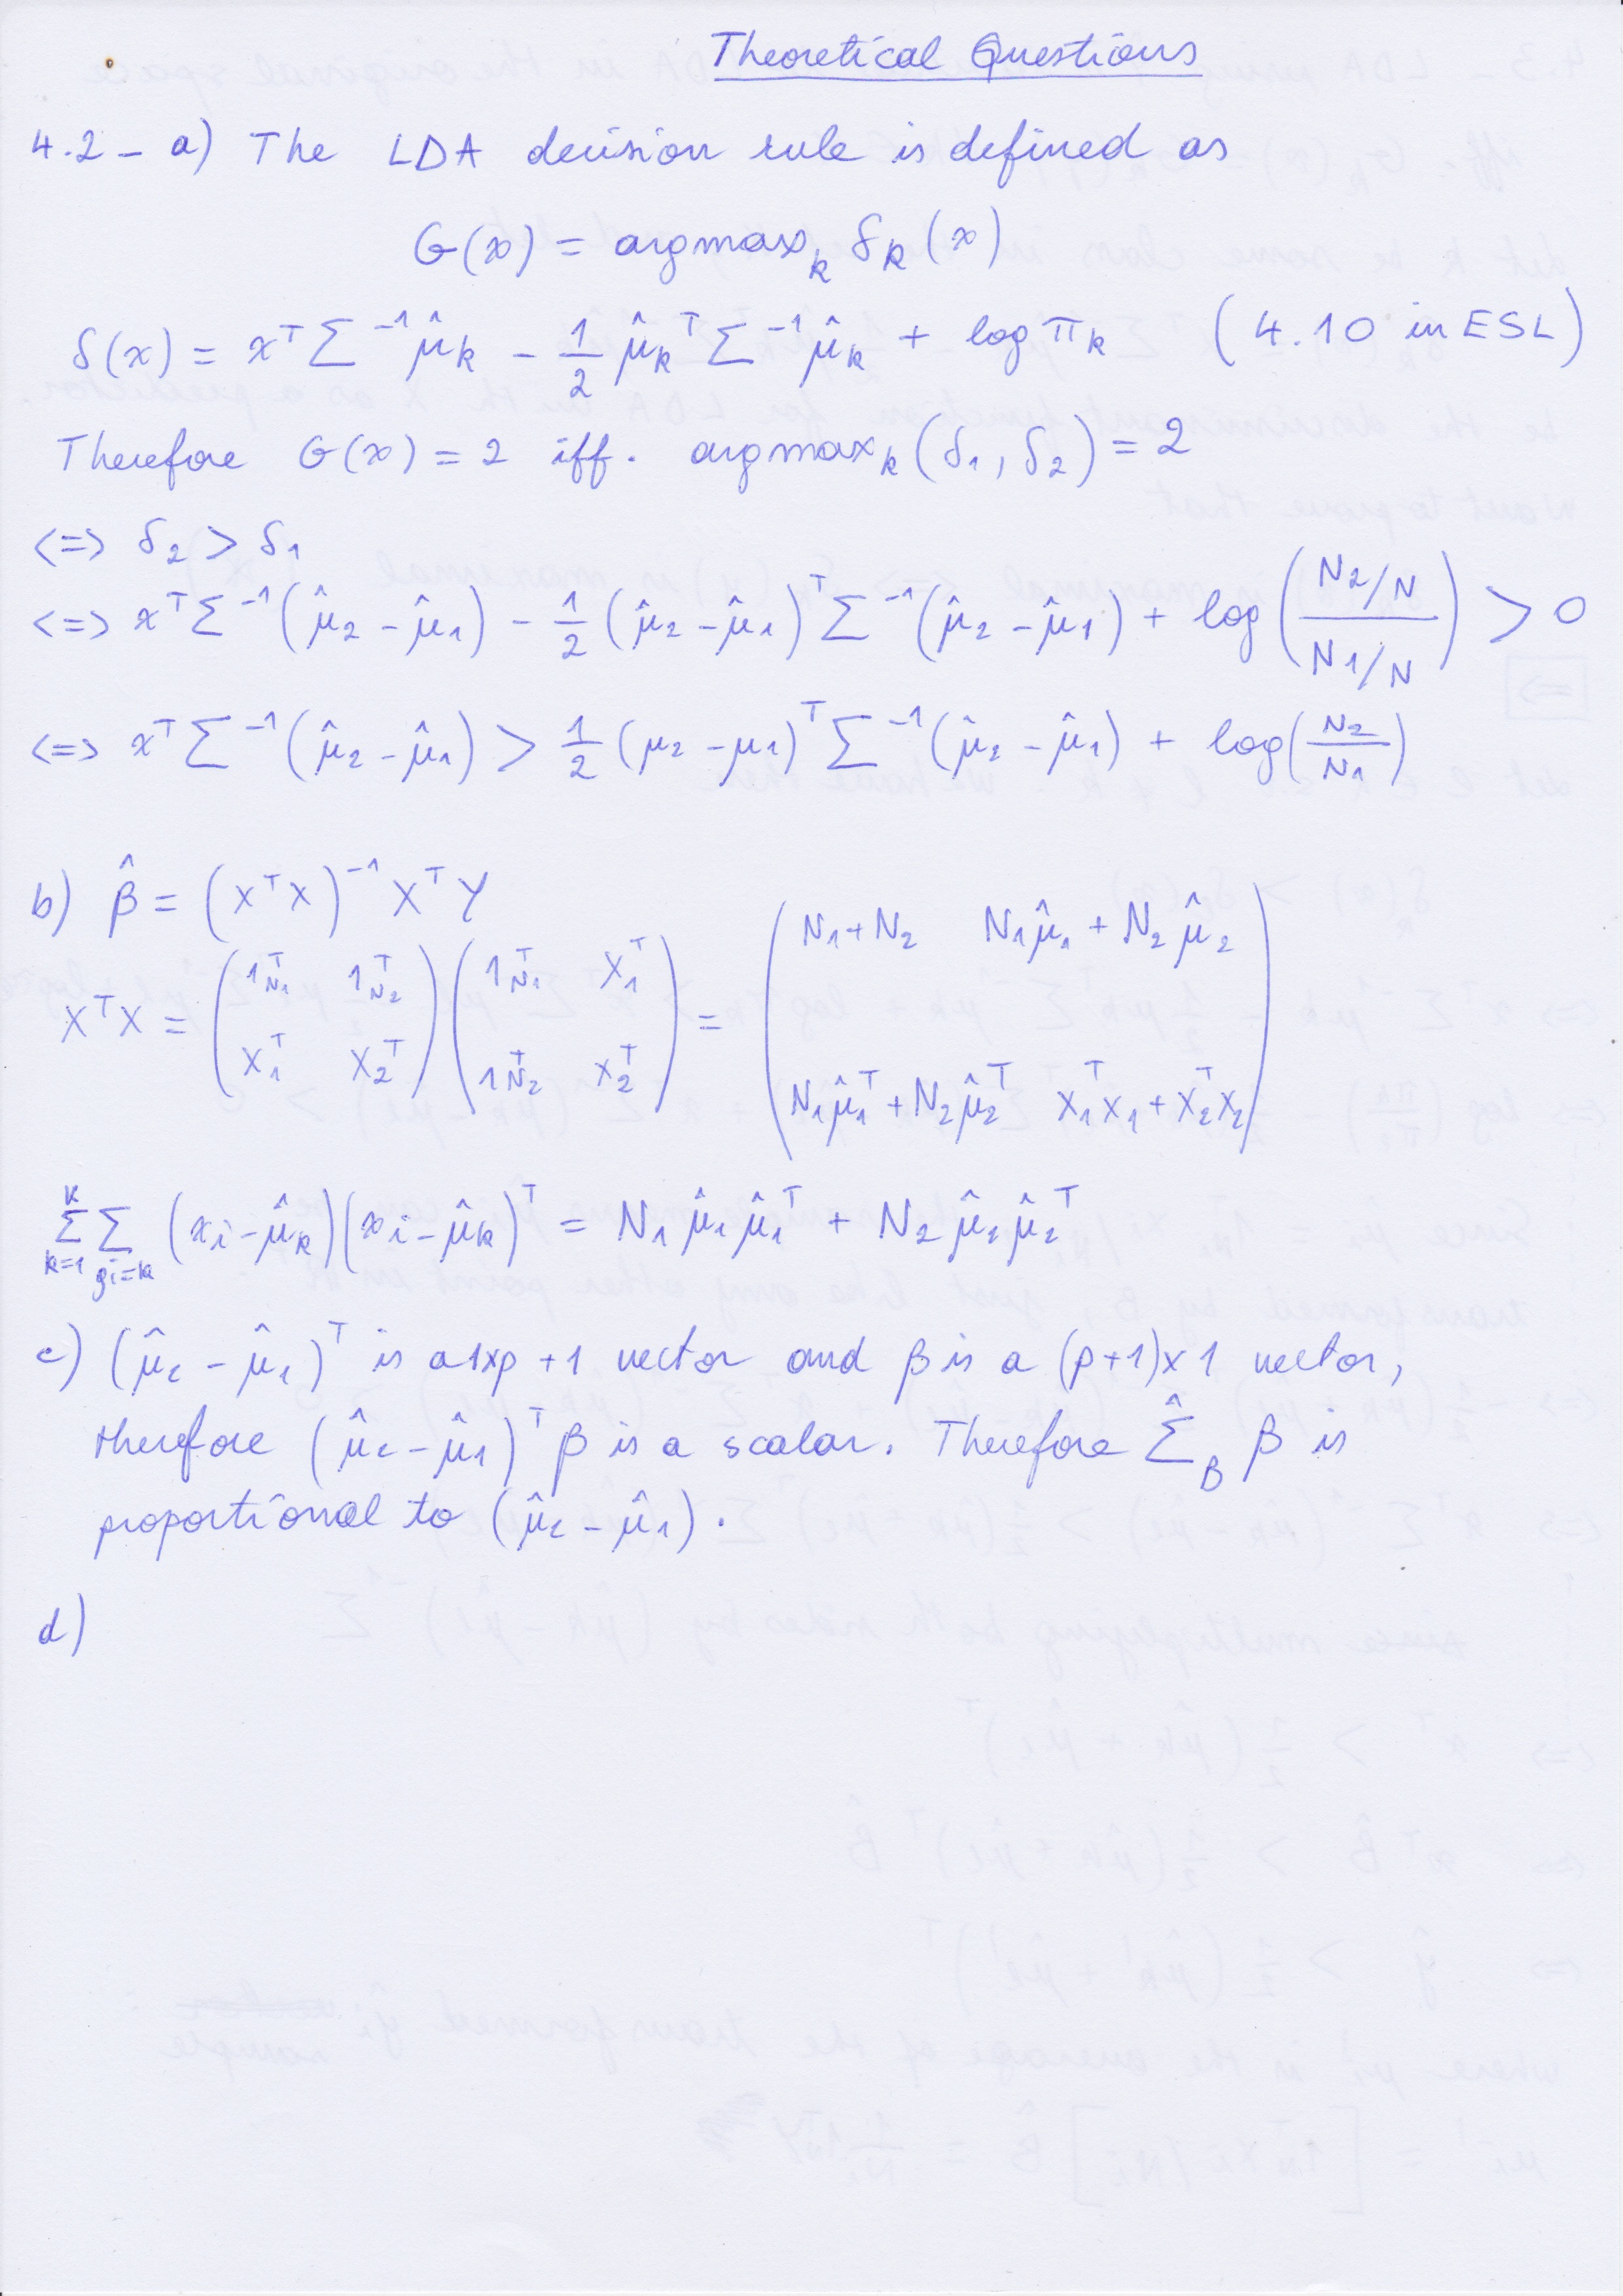 Theoretical Questions
4.2 - a) The LDA decision rule is defined as
G(x) = argmax_k δ_k(x)
δ(x) = x^T Σ^{-1} μ̂_k - 1/2 μ̂_k^T Σ^{-1} μ̂_k + log π_k (4.10 in ESL)
Therefore G(x) = 2 iff. argmax_k (δ_1, δ_2) = 2
<=> δ_2 > δ_1
<=> x^T Σ^{-1} (μ̂_2 - μ̂_1) - 1/2 (μ̂_2 - μ̂_1)^T Σ^{-1} (μ̂_2 - μ̂_1) + log((N_2/N)/(N_1/N)) > 0
<=> x^T Σ^{-1} (μ̂_2 - μ̂_1) > 1/2 (μ_2 - μ_1)^T Σ^{-1} (μ̂_2 - μ̂_1) + log(N_2/N_1)
b) β̂ = (X^T X)^{-1} X^T Y
X^T X = (1_{N_1}^T 1_{N_2}^T ; X_1^T X_2^T) (1_{N_1}^T X_1^T ; 1_{N_2}^T X_2^T) = (N_1 + N_2 N_1 μ̂_1 + N_2 μ̂_2 ; N_1 μ̂_1^T + N_2 μ̂_2^T X_1^T X_1 + X_2^T X_2)
Σ_{k=1}^K Σ_{g_i=k} (x_i - μ̂_k)(x_i - μ̂_k)^T = N_1 μ̂_1 μ̂_1^T + N_2 μ̂_2 μ̂_2^T
c) (μ̂_2 - μ̂_1)^T is a 1xp + 1 vector and β is a (p+1)x1 vector,
therefore (μ̂_2 - μ̂_1)^T β is a scalar. Therefore Σ̂_B β is
proportional to (μ̂_2 - μ̂_1).
d)